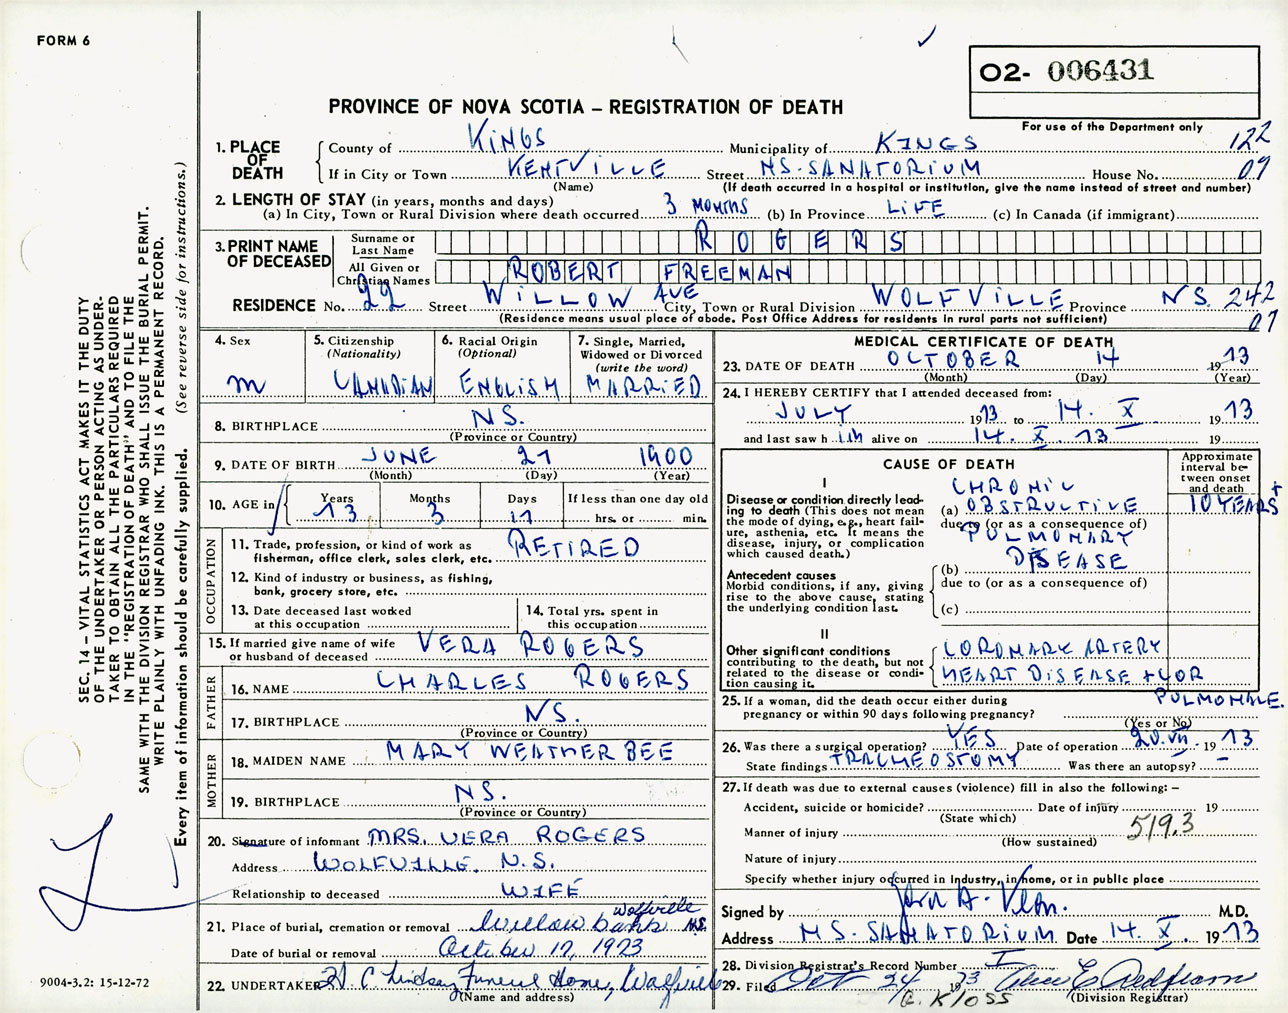 FORM 6
O2- 006431
PROVINCE OF NOVA SCOTIA – REGISTRATION OF DEATH
For use of the Department only
1. PLACE OF DEATH
County of KINGS Municipality of KINGS 122
If in City or Town KENTVILLE Street NS. SANATORIUM House No. 09
(Name) (If death occurred in a hospital or institution, give the name instead of street and number)
2. LENGTH OF STAY (in years, months and days)
(a) In City, Town or Rural Division where death occurred 3 MONTHS (b) In Province LIFE (c) In Canada (if immigrant)
3. PRINT NAME OF DECEASED
Surname or Last Name ROGERS
All Given or Christian Names ROBERT FREEMAN
RESIDENCE No. 22 Street WILLOW AVE City, Town or Rural Division WOLFVILLE Province NS. 242
(Residence means usual place of abode. Post Office Address for residents in rural parts not sufficient) 07
4. Sex
M
5. Citizenship (Nationality)
CANADIAN
6. Racial Origin (Optional)
ENGLISH
7. Single, Married, Widowed or Divorced (write the word)
MARRIED
8. BIRTHPLACE NS.
(Province or Country)
9. DATE OF BIRTH JUNE 27 1900
(Month) (Day) (Year)
10. AGE in
Years Months Days If less than one day old
73 3 17 hrs. or min.
OCCUPATION
11. Trade, profession, or kind of work as fisherman, office clerk, sales clerk, etc. RETIRED
12. Kind of industry or business, as fishing, bank, grocery store, etc.
13. Date deceased last worked at this occupation
14. Total yrs. spent in this occupation
15. If married give name of wife or husband of deceased VERA ROGERS
FATHER
16. NAME CHARLES ROGERS
17. BIRTHPLACE NS.
(Province or Country)
MOTHER
18. MAIDEN NAME MARY WEATHERBEE
19. BIRTHPLACE NS.
(Province or Country)
20. Signature of informant MRS. VERA ROGERS
Address WOLFVILLE. N.S.
Relationship to deceased WIFE
21. Place of burial, cremation or removal Willowbank Wolfville N.S.
Date of burial or removal October 17, 1973
22. UNDERTAKER C Lindsay Funeral Home, Wolfville
(Name and address)
MEDICAL CERTIFICATE OF DEATH
23. DATE OF DEATH OCTOBER 14 1973
(Month) (Day) (Year)
24. I HEREBY CERTIFY that I attended deceased from:
JULY 1973 to 14. X 1973
and last saw h im alive on 14. X. 73 19
CAUSE OF DEATH
Approximate interval between onset and death
I
Disease or condition directly leading to death (This does not mean the mode of dying, e.g., heart failure, asthenia, etc. It means the disease, injury, or complication which caused death.)
CHRONIC
(a) OBSTRUCTIVE 10 YEARS +
due to (or as a consequence of)
PULMONARY
(b) DISEASE
Antecedent causes
Morbid conditions, if any, giving rise to the above cause, stating the underlying condition last.
due to (or as a consequence of)
(c)
II
Other significant conditions contributing to the death, but not related to the disease or condition causing it.
CORONARY ARTERY
HEART DISEASE + COR
PULMONALE.
25. If a woman, did the death occur either during pregnancy or within 90 days following pregnancy?
(Yes or No)
26. Was there a surgical operation? YES Date of operation 20. VII. 1973
State findings TRACHEOSTOMY Was there an autopsy? –
27. If death was due to external causes (violence) fill in also the following: –
Accident, suicide or homicide? Date of injury 19
(State which)
Manner of injury 519.3
(How sustained)
Nature of injury
Specify whether injury occurred in Industry, in home, or in public place
Signed by M.D.
Address NS. SANATORIUM Date 14. X. 1973
28. Division Registrar's Record Number
29. Filed Oct 24 1973
(Division Registrar)
G. Kloss
SEC. 14 – VITAL STATISTICS ACT MAKES IT THE DUTY
OF THE UNDERTAKER OR PERSON ACTING AS UNDER-
TAKER TO OBTAIN ALL THE PARTICULARS REQUIRED
IN THE "REGISTRATION OF DEATH" AND TO FILE THE
SAME WITH THE DIVISION REGISTRAR WHO SHALL ISSUE THE BURIAL PERMIT.
WRITE PLAINLY WITH UNFADING INK. THIS IS A PERMANENT RECORD.
Every item of information should be carefully supplied. (See reverse side for instructions.)
9004-3.2: 15-12-72